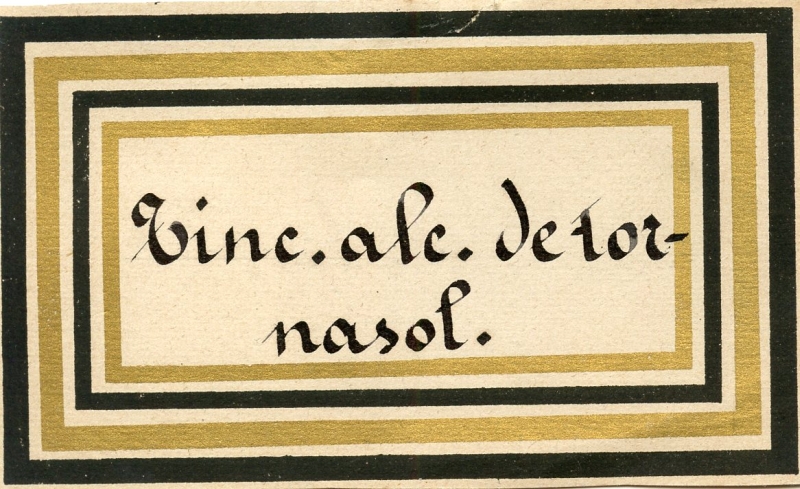 Tinc. alc. de tor-
nasol.